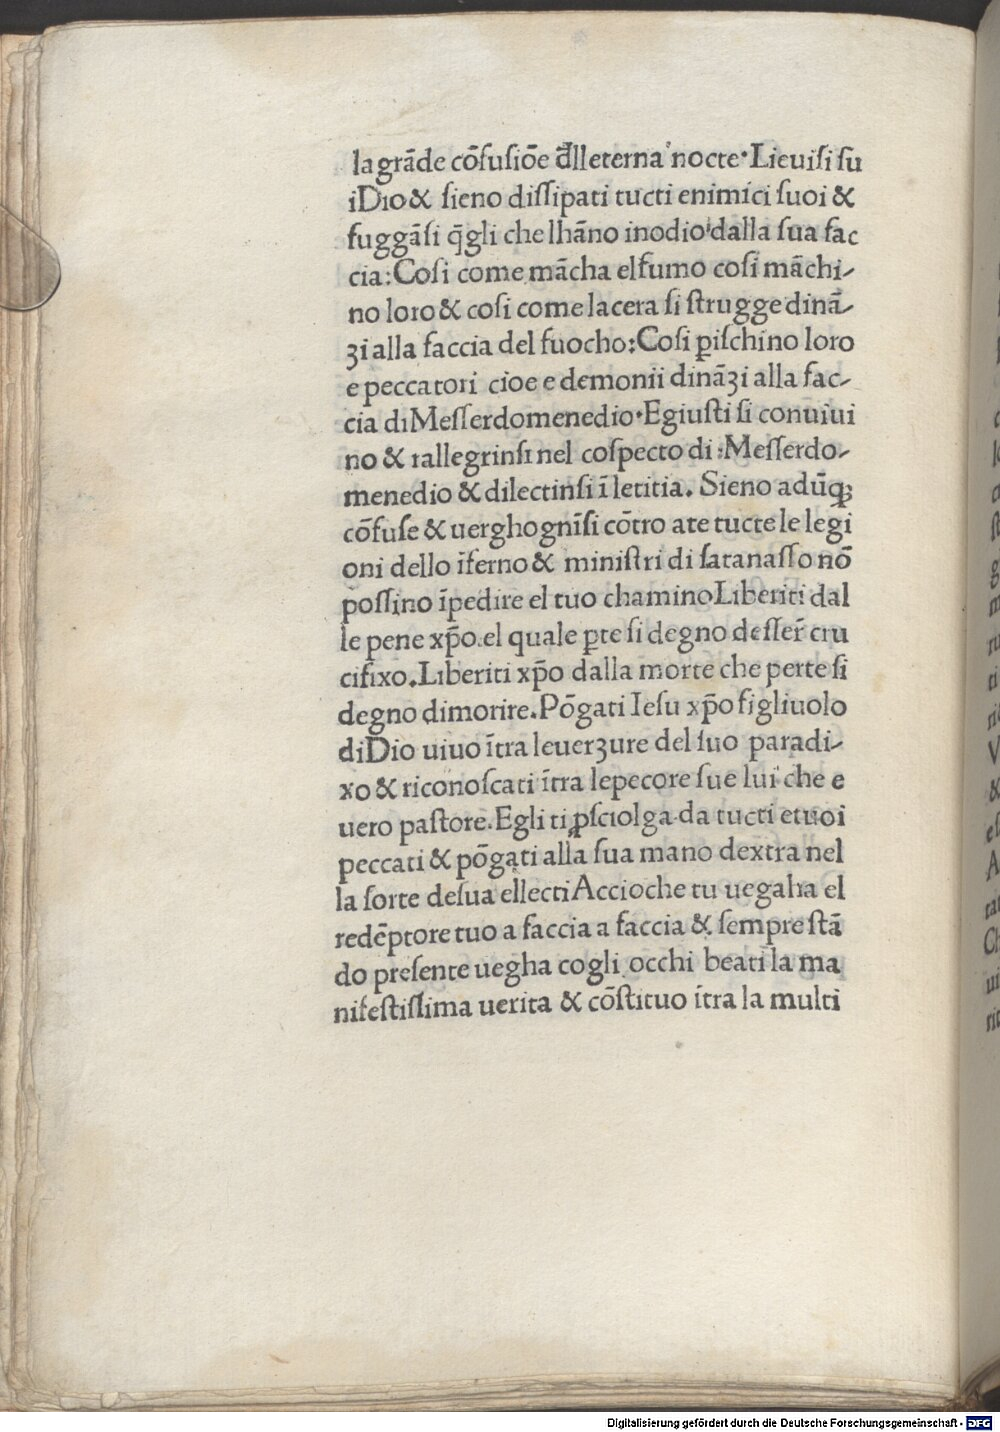 la grāde cōfusiōe đlleterna nocte·Lieuisi su
iDio& sieno dissipati tucti enimici suoi &
fuggāsi q̄gli che lhāno inodio dalla sua fac
cia:Cosi come mācha elfumo cosi māchi-
no loro & cosi come lacera si strugge dinā-
ʒi alla faccia del fuocho:Cosi ꝑischino loro
e peccatori cioe e demonii dināʒi alla fac-
cia di Messerdomenedio·Egiusti si conuiui
no & rallegrinsi nel cospecto di:Messerdo-
menedio & dilectinsi ī letitia. Sieno adūqꝫ
cōfuse & uerghognīsi cōtro ate tucte le legi
oni dello īferno & ministri di satanasso nō
possino īpedire el tuo chamino Liberiti dal
le pene xp̄o.el quale ꝑte si degno desser̄ cru
cifixo.Liberiti xp̄o dalla morte che perte si
degno dimorire.Pōgati Iesu xp̄o figliuolo
diDio uiuo ītra leuerʒure del suo paradi-
xo & riconoscati ītra lepecore sue lui che e
uero pastore.Egli ti ꝓsciolga da tucti etuoi
peccati & pōgati alla sua mano dextra nel
la sorte desua ellecti Accioche tu uegaha el
redēptore tuo a faccia a faccia & sempre stā
do presente uegha cogli occhi beati la ma
nifestissima uerita & cōstituo ītra la multi
Digitalisierung gefördert durch die Deutsche Forschungsgemeinschaft - DFG